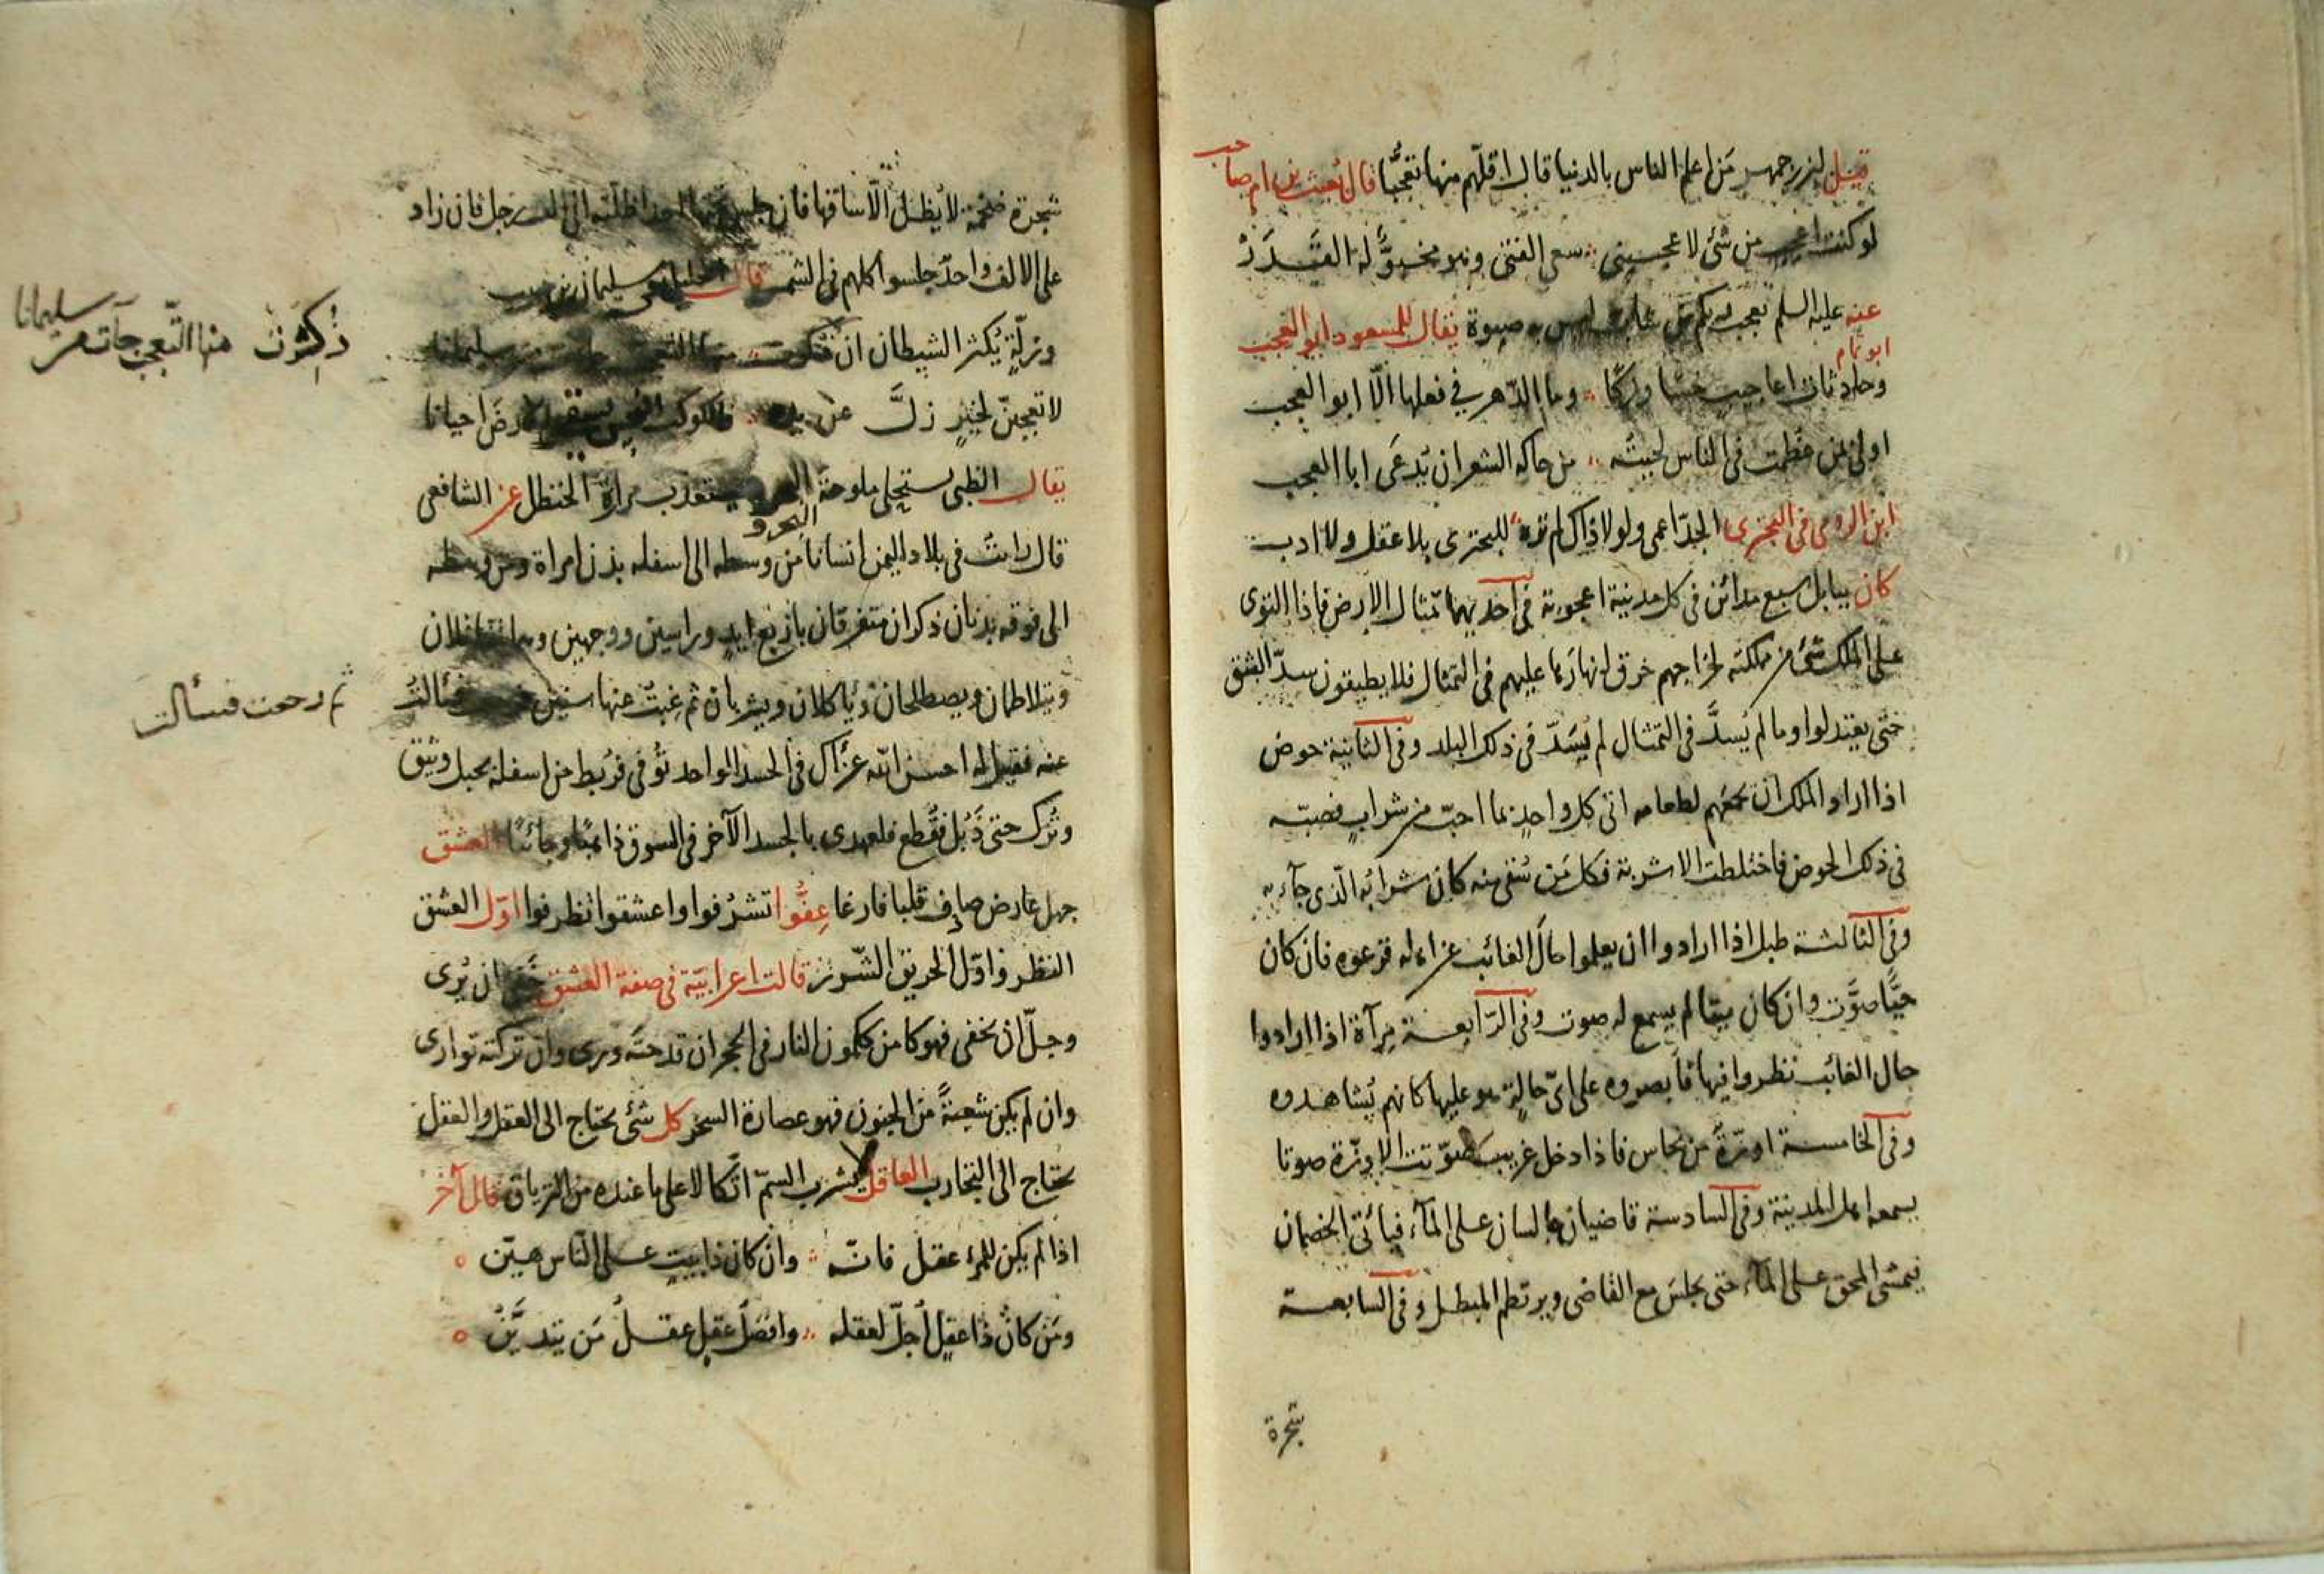 قيل لبزرجمهر من اعلم الناس بالدنيا قال اقلّهم منها تعجّبًا قال قعنب بن ام صاحب
لو كنت اعجب من شئ لاعجبنى سعى الفتى وهو مخبوّء له القَدَرُ
عنه عليه السلم تعجب ربكم من شاب ليس له صبوة يقال للمسعود ابو العجب
ابو تمام
وحادثات اعاجيب خسًا وزكًا وما الدّهر في فعلها الّا ابو العجب
اولى بمن عظمت فى الناس لحيته من حاكه الشعر ان يدعى ابا العجب
ابن الرومى فى البحترى الجدّ اعمى ولولا ذاك لم تره للبحترى بلا عقل ولا ادب
كان ببابل سبع مدائن فى كل مدينة اعجوبة فى احديهما تمثال الارض فاذا التوى
على الملك شئ من مملكته لخراجهم خرق انهارها عليهم فى التمثال فلا يطيقون سدّ البثق
حتى يعتدلوا وما لم يُسدَّ فى التمثال لم يُسَدّ فى ذلك البلد وفى الثانية حوض
اذا اراد الملك ان يجمعهم لطعامه اتى كل واحدٍ بما احبّ من شرابٍ فصبّه
فى ذلك الحوض فاختلطت الاشربة فكل من سُقى منه كان شرابُه الّذى جآء به
وفى الثالثة طبل اذا ارادوا ان يعلموا حالَ الغائب عن اهله قرعوه فان كان
حيًّا صوَّت وان كان ميتا لم يسمع له صوت وفى الرّابعة مرآة اذا ارادوا
حال الغائب نظروا فيها فابصروه على اىّ حالةٍ هو عليها كانهم يُشاهدوه
وفى الخامسة اوزّةٌ من نحاس فاذا دخل غريب صوّتت الاوزّة صوتا
يسمعه اهل المدينة وفى السادسة قاضيان جالسان على المآء فيأتى الخصمان
فيمشى المحق على المآء حتى يجلسَ مع القاضى ويرتطم المبطل وفى السابعة
شجرة
شجرة ضخمة لا يُظلّ الّا ساقها فان جلس تحتها احد اظلّته الى الف رجل فان زاد
على الالف واحدٌ جلسوا كلهم فى الشمس قال سليمان بن
وزلّةٍ يُكثر الشيطان ان
ذُكِرَت منها التّعجبَ جآءت من سليمانا
لا تعجبنّ لخيرٍ زلَّ عن يده فالكوكب النحس يسقى الارضَ احيانا
يقال الظبى يستحلى ملوحة البحر و يستعذب مرارة الحنظل عن الشافعى
قال رايتُ فى بلاد اليمن انسانا من وسطه الى اسفله بدن امراة ومن وسطه
الى فوقه بدنان ذكران متفرقان باربع ايدٍ وراسين ووجهين وهما
ويتلاطمان ويصطلحان ويأكلان ويشربان ثم غبتُ عنها سنين
ثم رجعت فسألت
عنه فقيل له احسن الله عزاك فى الجسد الواحد تُوُفّى فرُبط من اسفله بحبل وثيق
وتُرك حتى ذَبُل فقُطع فلعهدى بالجسد الآخر فى السوق ذاهبًا وجائيًا العشق
جهل عارض صادف قلبا فارغا عِفُّوا تشرُفوا واعشقوا تظرفوا اوّل العشق
النظر واوّل الحريق الشّرر قالت اعرابيّة فى صفة العشق خَفى ان يُرى
وجلّ ان يخفى فهو كامن ككمون النار فى الحجر ان قدحتَه ورى وان تركته توارى
وان لم يكن شعبةً من الجنون فهو عصارة السحر كل شئ يحتاج الى العقل والعقل
يحتاج الى التجارب العاقل لا يشرب السمّ اتّكالا على ما عنده من الترياق قال آخر
اذا لم يكن للمرء عقل فانّه وان كان ذا بيتٍ على النّاس هيّن
ومَن كان ذا عقلٍ اُجلّ لعقله وافضلُ عقلٍ عقلُ مَن يتديَّنُ